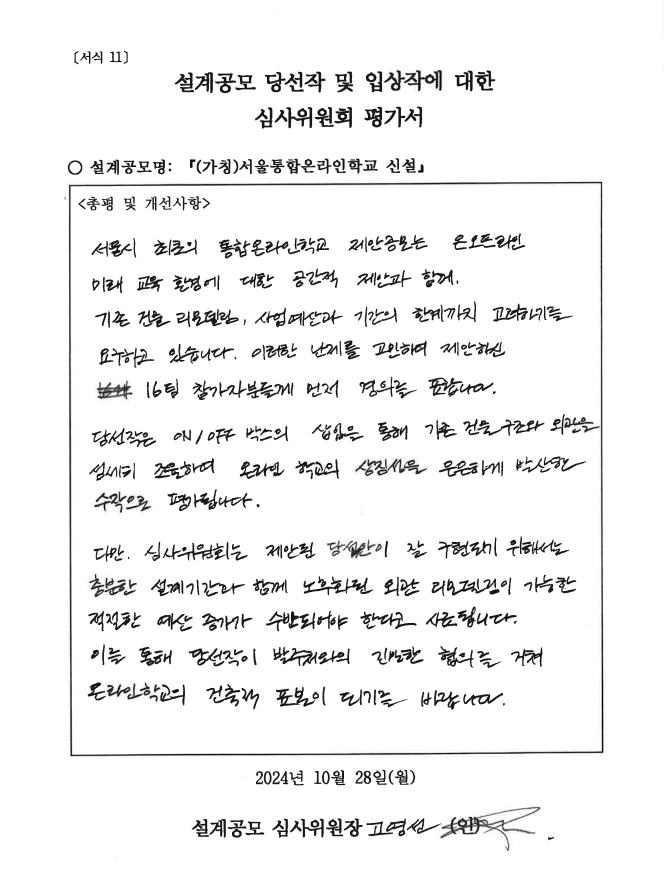 〔서식 11〕
설계공모 당선작 및 입상작에 대한
심사위원회 평가서
○ 설계공모명: 『(가칭)서울통합온라인학교 신설』
<총평 및 개선사항>
서울시 최초의 통합온라인학교 제안공모는 온오프라인
미래 교육 환경에 대한 공간적 제안과 함께,
기존 건물 리모델링, 사업예산과 기간의 한계까지 고려하기를
요구하고 있습니다. 이러한 난제를 고민하며 제안하신
16팀 참가자분들께 먼저 경의를 표합니다.
당선작은 ON/OFF 박스의 삽입을 통해 기존 건물 구조와 외관을
섬세히 조율하며 온라인 학교의 상징성을 은은하게 발산한
수작으로 평가됩니다.
다만, 심사위원회는 제안된 당선안이 잘 구현되기 위해서는
충분한 설계기간과 함께 노후화된 외관 리모델링이 가능한
적절한 예산 증가가 수반되어야 한다고 사료됩니다.
이를 통해 당선작이 발주처와의 긴밀한 협의를 거쳐
온라인학교의 건축적 표본이 되기를 바랍니다.
2024년 10월 28일(월)
설계공모 심사위원장 고영선 (인)